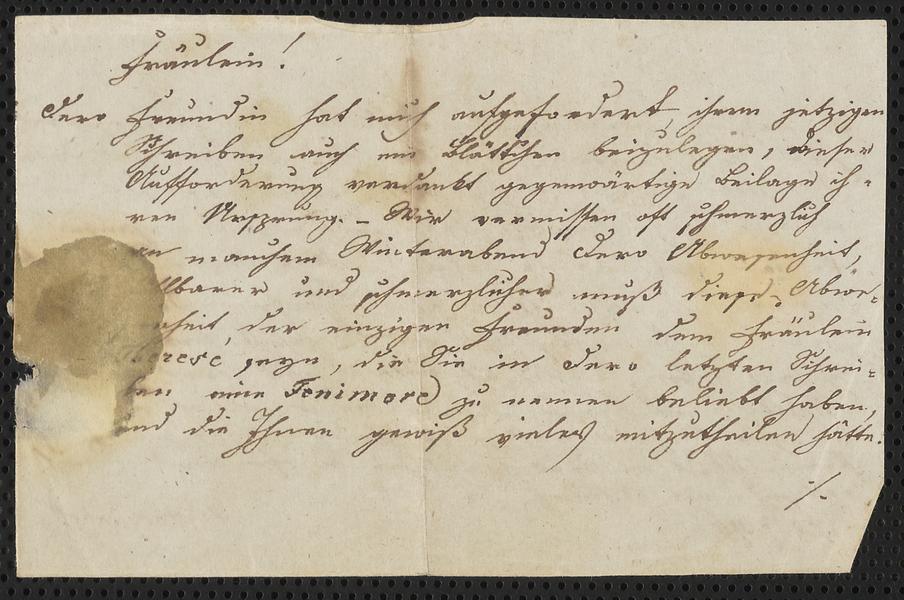 Fräulein!
Dero Freundin hat mich aufgefordert, ihrem jetzigen
Schreiben auch ein Blättchen beizulegen, dieser
Aufforderung verdankt gegenwärtige Beilage ih-
ren Ursprung. – Wir vermissen oft schmerzlich
an manchem Winterabend Dero Abwesenheit,
lbarer und schmerzlicher muß diese Abwe-
nheit der einzigen Freundin dem Fräulein
erese, seyn, die Sie in Dero letzten Schrei-
ben eine Fenimore zu nennen beliebt haben,
und die Ihnen gewiß vieles mitzutheilen hätte.